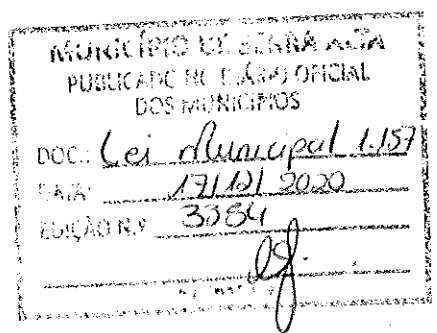 MUNICÍPIO DE SERRA ALTA
PUBLICADO NO DIÁRIO OFICIAL
DOS MUNICÍPIOS
DOC.: Lei Municipal 1.157
DATA: 17/12/2020
EDIÇÃO N.º 3354